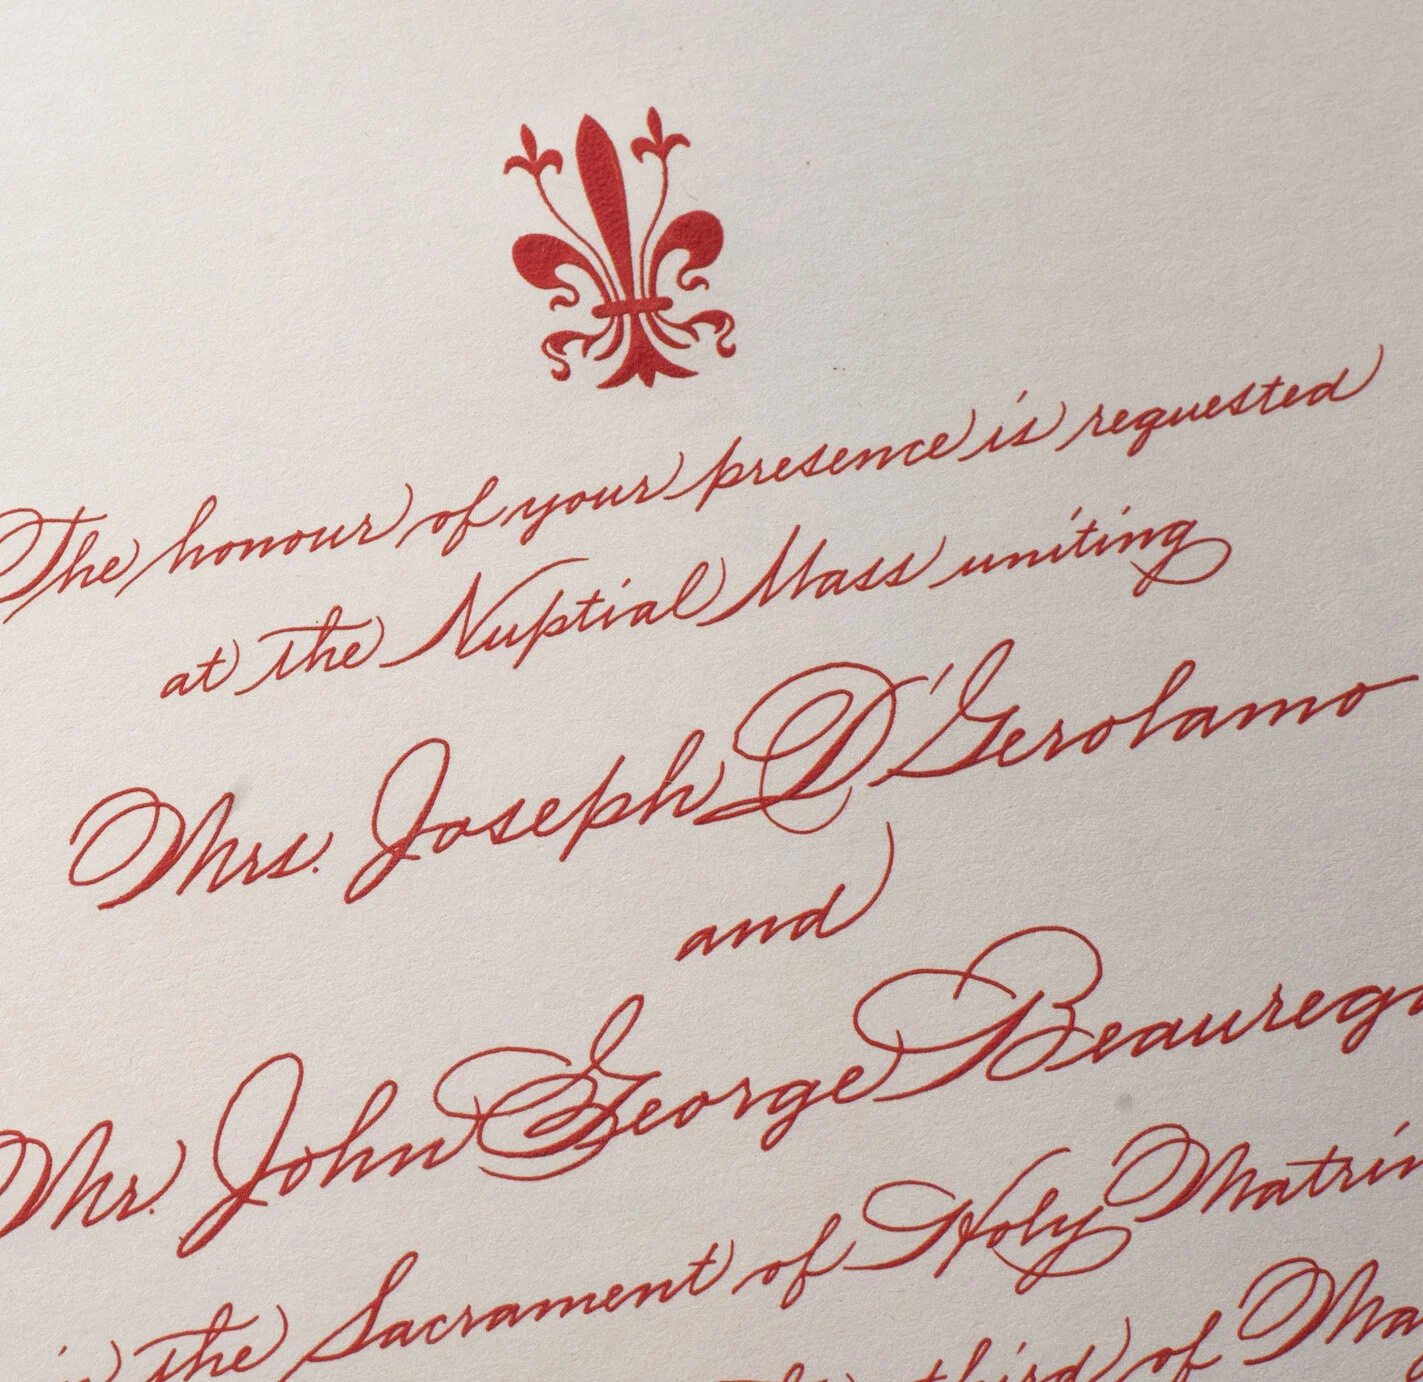 The honour of your presence is requested
at the Nuptial Mass uniting
Mrs. Joseph D'Gerolamo
and
Mr. John George Beaurega
in the Sacrament of Holy Matrim
third of Ma